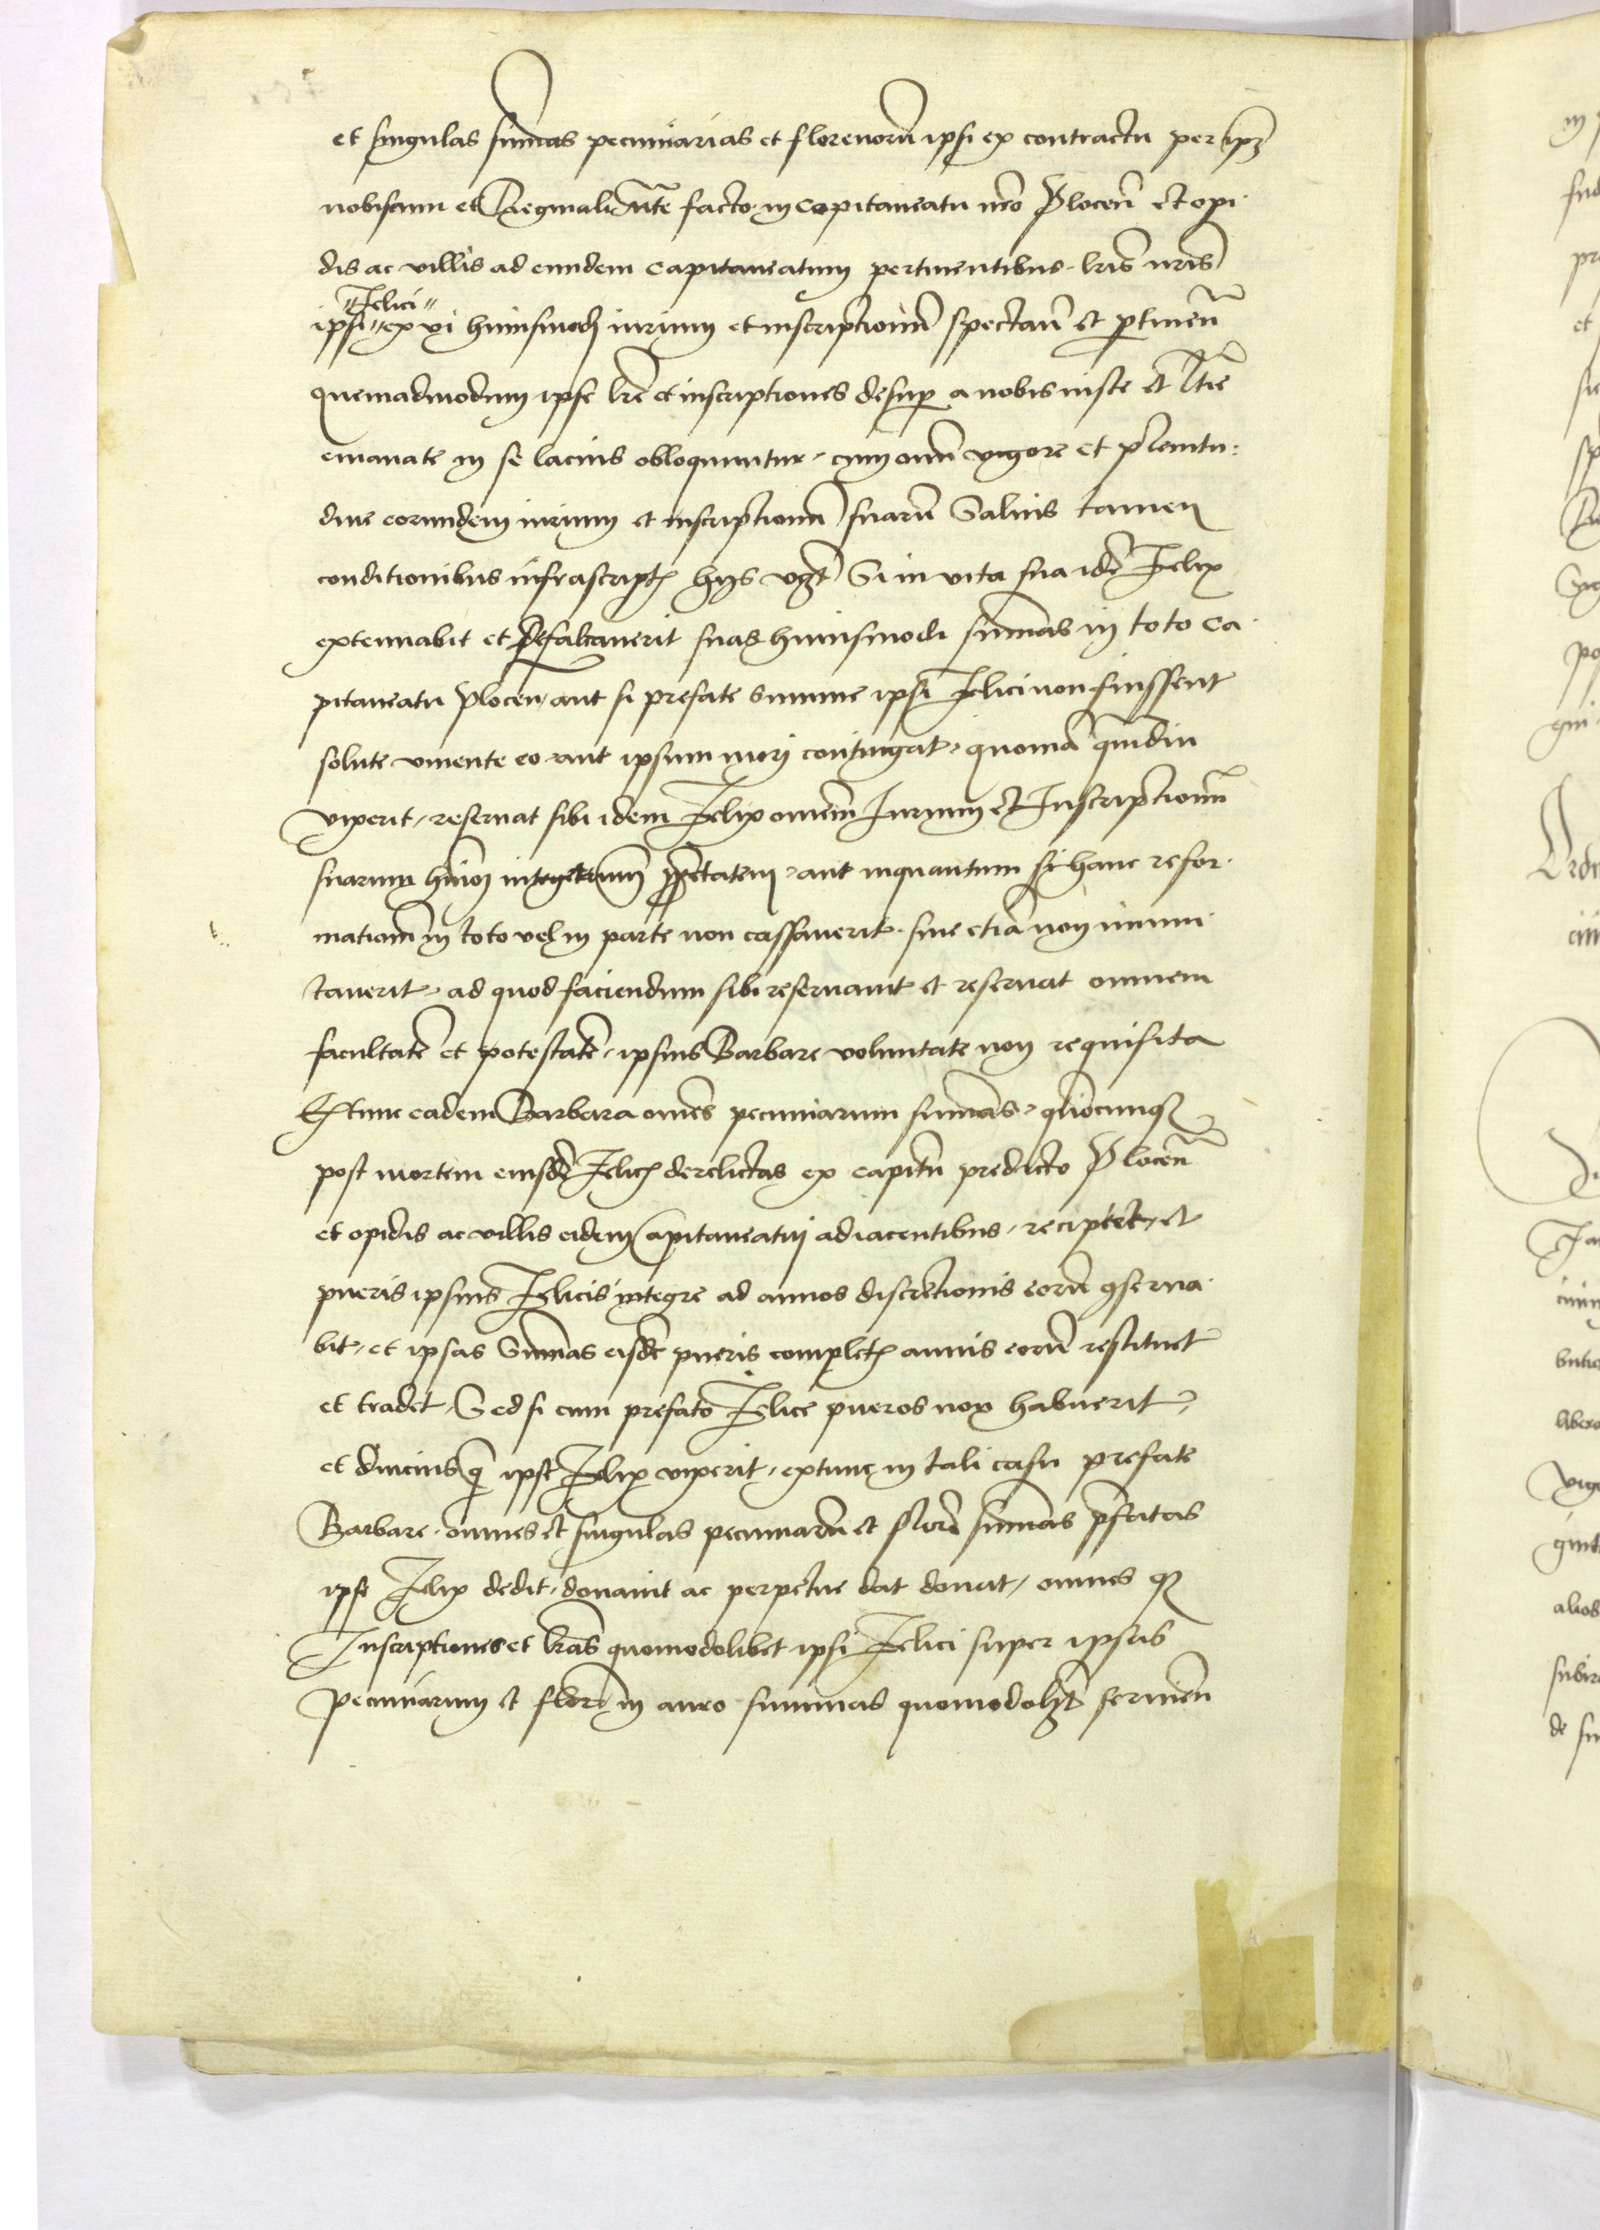 et singulas sum̄as pecuniarias et florenorū ipsi ex contractu per ip̄m
nobiscum et Reginali M̄te facto in Capitaneatu nr̄o Plocen̄ et opi
dis ac villis ad eundem Capitaneatum pertinentibus lr̄is nr̄is
"Felici"
ipsi ex vi huiusmodj iurium et inscriptionū spectan̄ et ꝑtinen̄
quemadmodum ipse lr̄e et inscriptiones desuꝑ a nobis iuste et
emanate in se lacius obloquuntur, cum om̄i vigore et plenitu:
dine eorundem iurium et inscriptionū suarū Salvis tamen
conditionibus infrascriptis hijs vꝫt Si in vita sua idē Felix
extenuabit et defalcaverit suas huiusmodi sum̄as in toto Ca
pitaneatu Plocen̄ aut si prefate summe ipsi Felici non fuissent
solute vivente eo aut ipsum mori contingat, quoniā quādiu
vixerit, reservat sibi idem Felix om̄em Iurium et Inscriptionū
suarum integerrimā aut inquantum si hanc refor
mationem in toto vel in parte non cassaverit sive etiā non immu
taverit, ad quod faciendum sibi reservavit et reservat omnem
facultatē et potestatē, ipsius Barbare voluntate non requisita
Extunc eadem Barbara om̄es pecuniarum sum̄as, qn̄cunqꝫ
post mortem eiusdē Felicis derelictas ex capitū predicto Plocen̄
et opidis ac villis eidem Capitaneatui adiacentibus, recipiet, et
pueris ipsius Felicis integre ad annos discretionis eorū ꝯserva
bit, et ipsas Sum̄as eisdē pueris completis annis eorū restituet
et tradet, Sed si cum prefato Felice pueros non habuerit,
et diucius q̄ ipse Felix vixerit, extunc in tali casu prefate
Barbare omnes et singulas pecuniarū et florē sum̄as p̄fatas
ipse Felix dedit, donavit ac perpetue dat donat, omnes qꝫ
Inscriptiones et lr̄as quomodolibet ipsi Felici super ipsas
pecuniarum et florē in auro summas quomodolꝫt servien̄